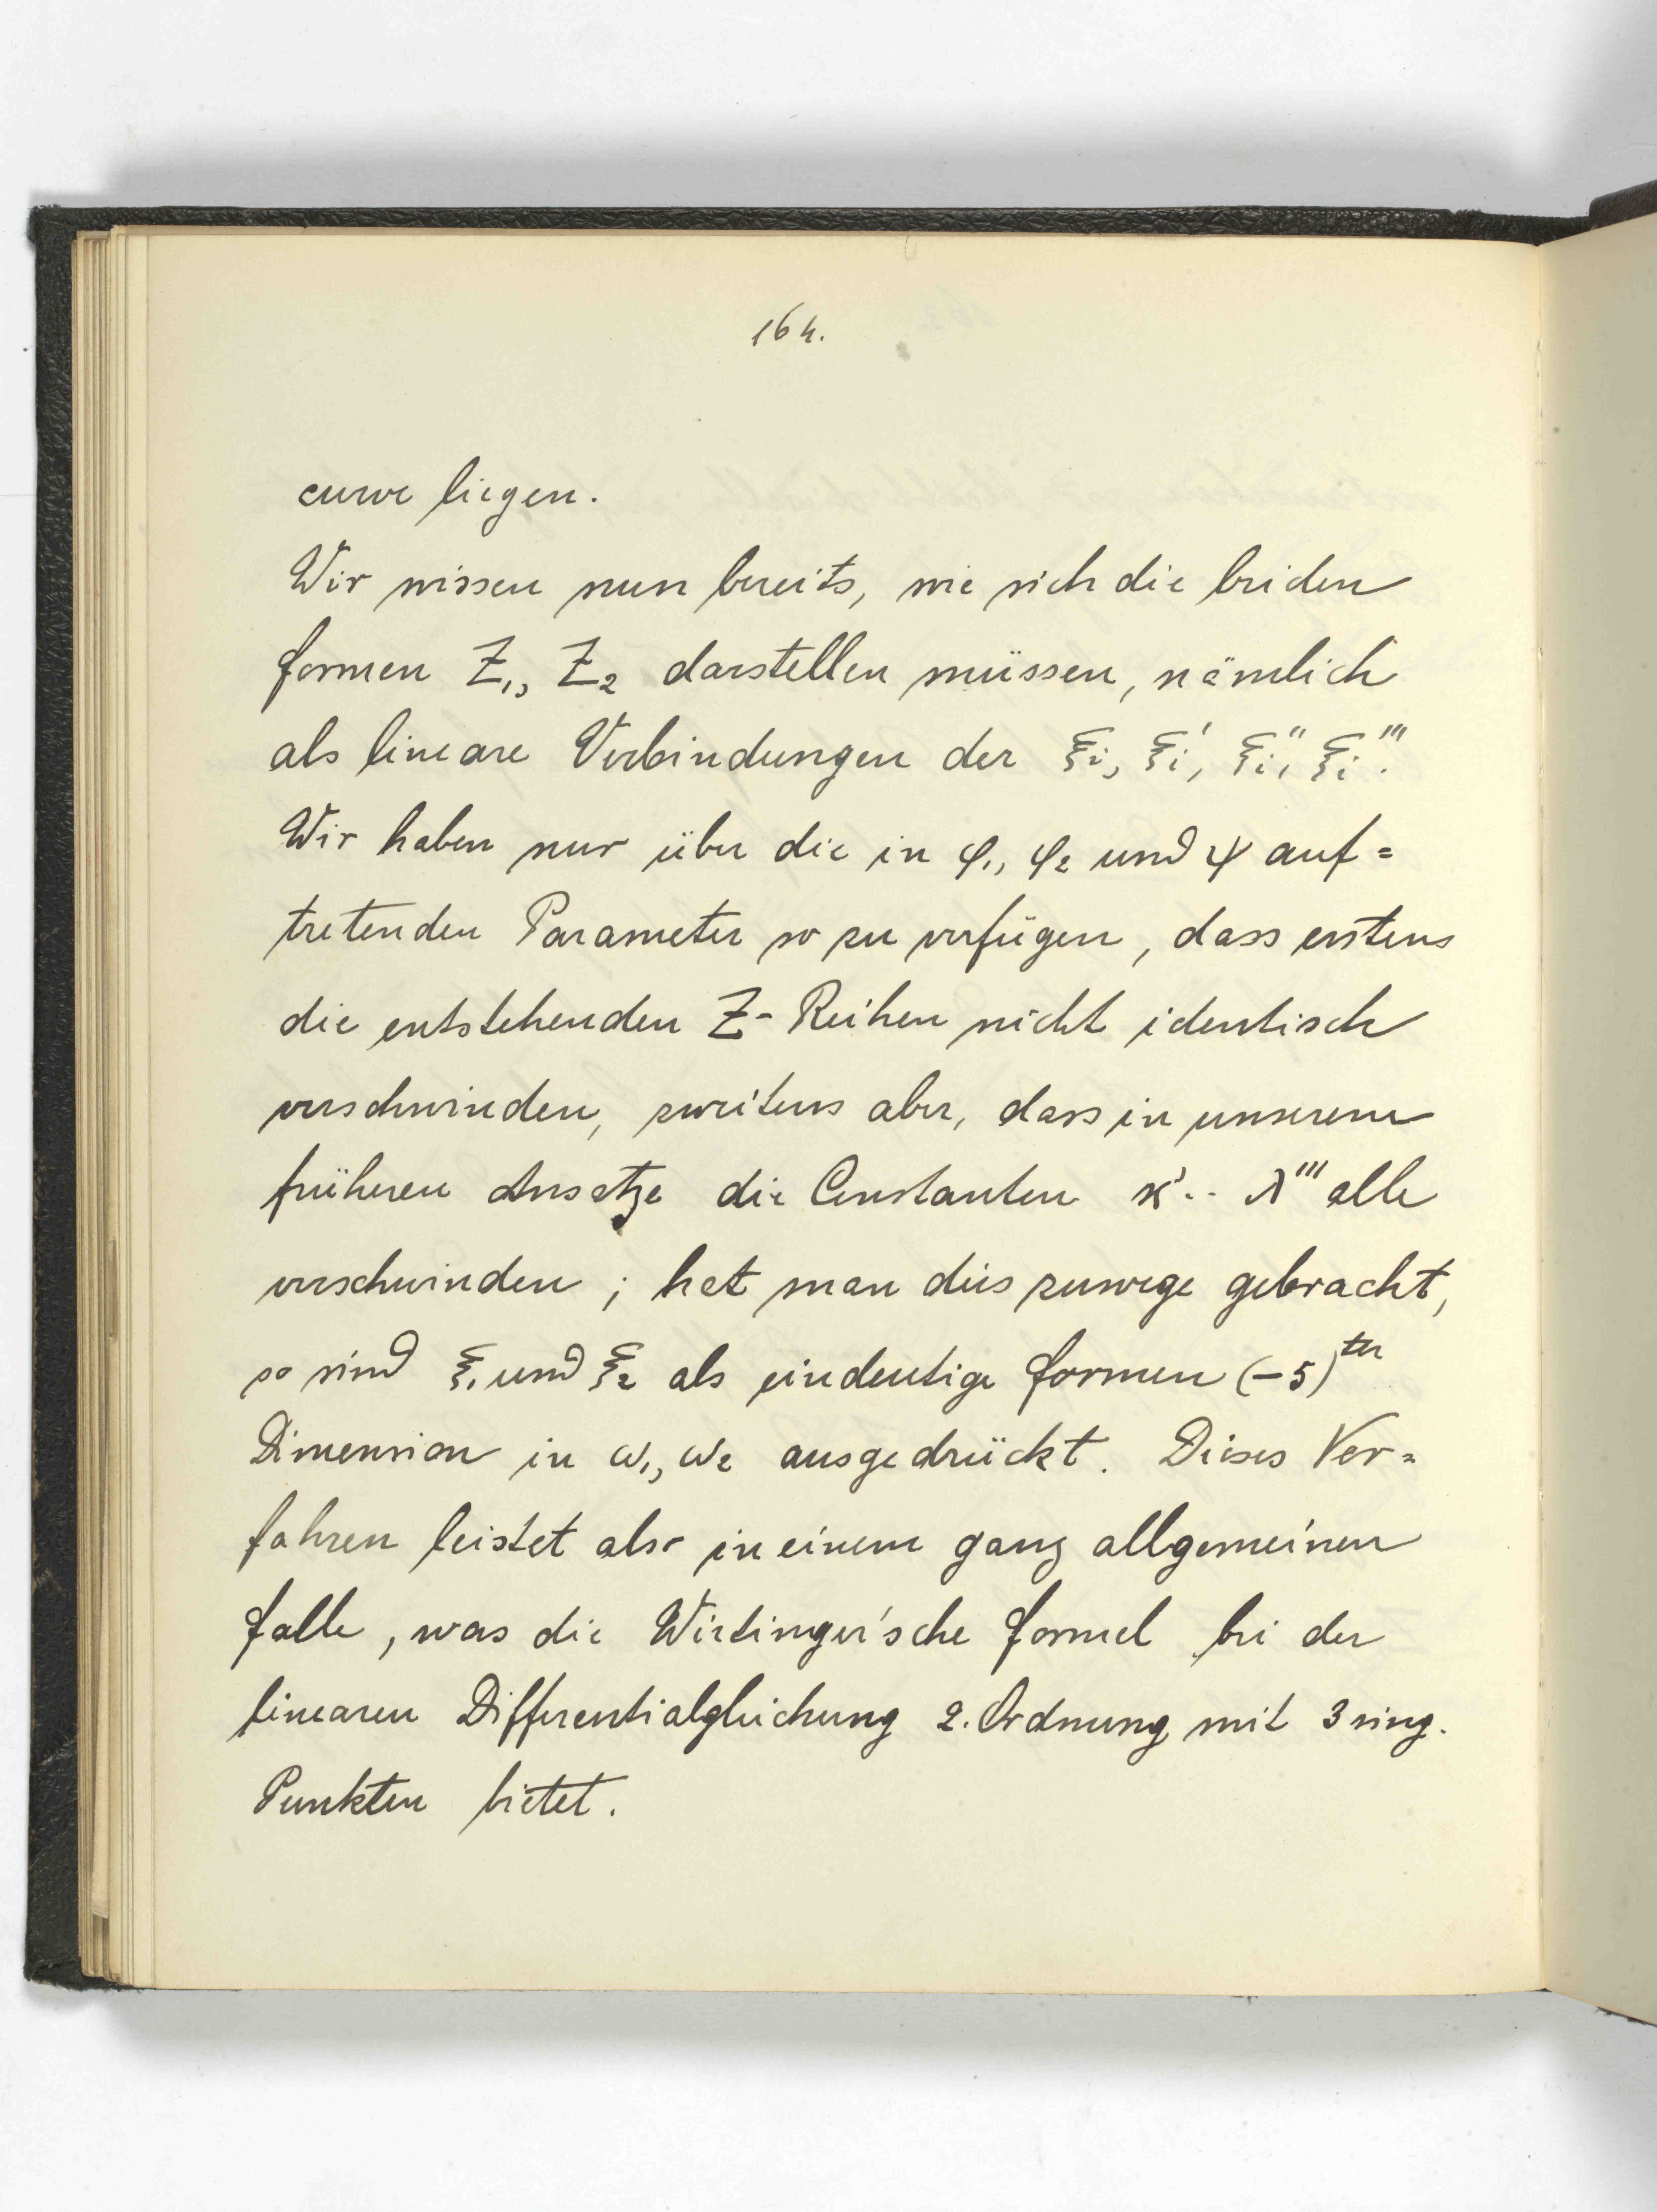 164.
curve liegen.
Wir wissen nun bereits, wie sich die beiden
Formen Z₁, Z₂ darstellen müssen, nämlich
als lineare Verbindungen der ξᵢ, ξᵢ', ξᵢ'', ξᵢ'''.
Wir haben nur über die in φ₁, φ₂ und ψ auf=
tretenden Parameter so zu verfügen, dass erstens
die entstehenden Z-Reihen nicht identisch
verschwinden, zweitens aber, dass in unserem
früheren Ansatze die Constanten κ'.. λ''' alle
verschwinden; hat man dies zuwege gebracht,
so sind ξ₁ und ξ₂ als eindeutige Formen (-5)ter
Dimension in ω₁, ω₂ ausgedrückt. Dieses Ver=
fahren leistet also in einem ganz allgemeinen
Falle, was die Wirtinger'sche Formel bei der
linearen Differentialgleichung 2. Ordnung mit 3 sing.
Punkten bietet.